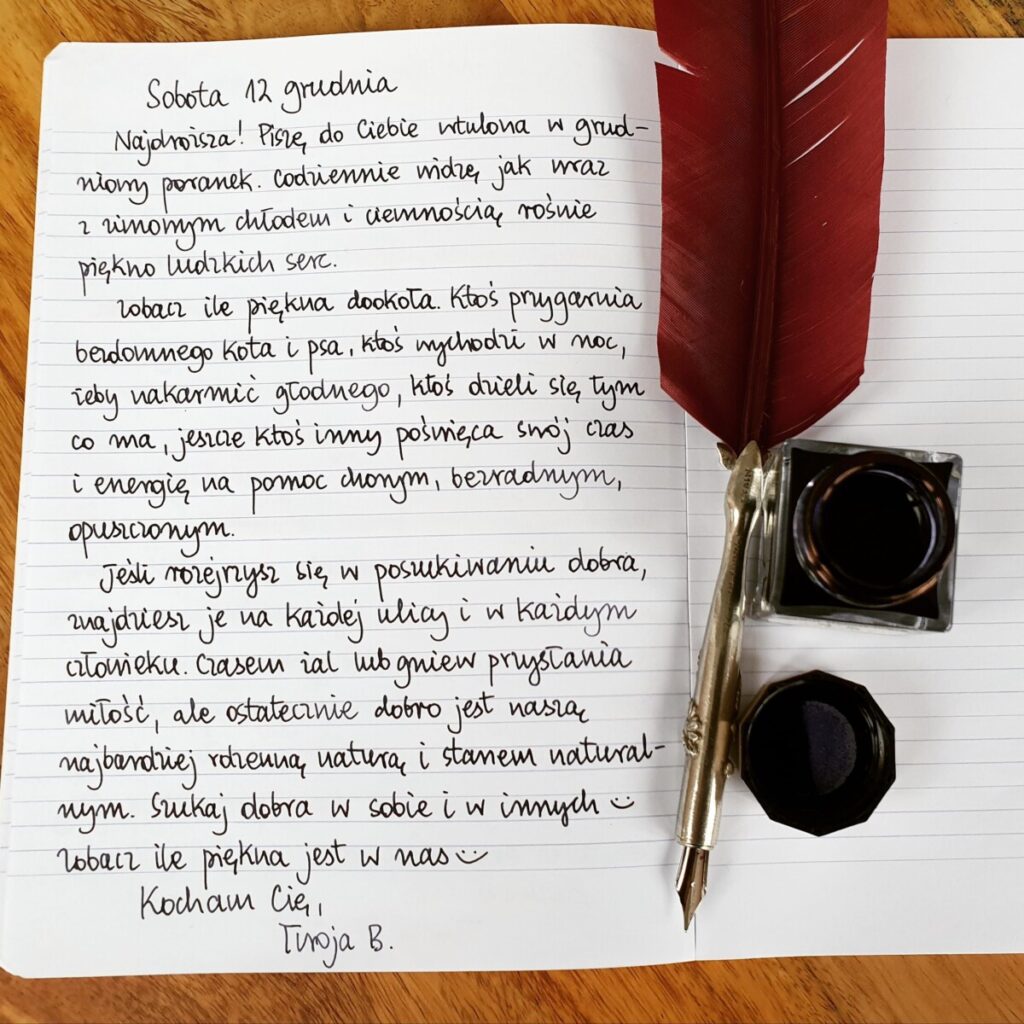 Sobota 12 grudnia
Najdroższa! Piszę do Ciebie wtulona w grud-
niowy poranek. Codziennie widzę jak wraz
z zimowym chłodem i ciemnością rośnie
piękno ludzkich serc.
Zobacz ile piękna dookoła. Ktoś przygarnia
bezdomnego kota i psa, ktoś wychodzi w noc,
żeby nakarmić głodnego, ktoś dzieli się tym
co ma, jeszcze ktoś inny poświęca swój czas
i energię na pomoc chorym, bezradnym,
opuszczonym.
Jeśli rozejrzysz się w poszukiwaniu dobra,
znajdziesz je na każdej ulicy i w każdym
człowieku. Czasem żal lub gniew przysłania
miłość, ale ostatecznie dobro jest naszą
najbardziej rdzenną naturą i stanem natural-
nym. Szukaj dobra w sobie i w innych :)
Zobacz ile piękna jest w nas :)
Kocham Cię,
Twoja B.